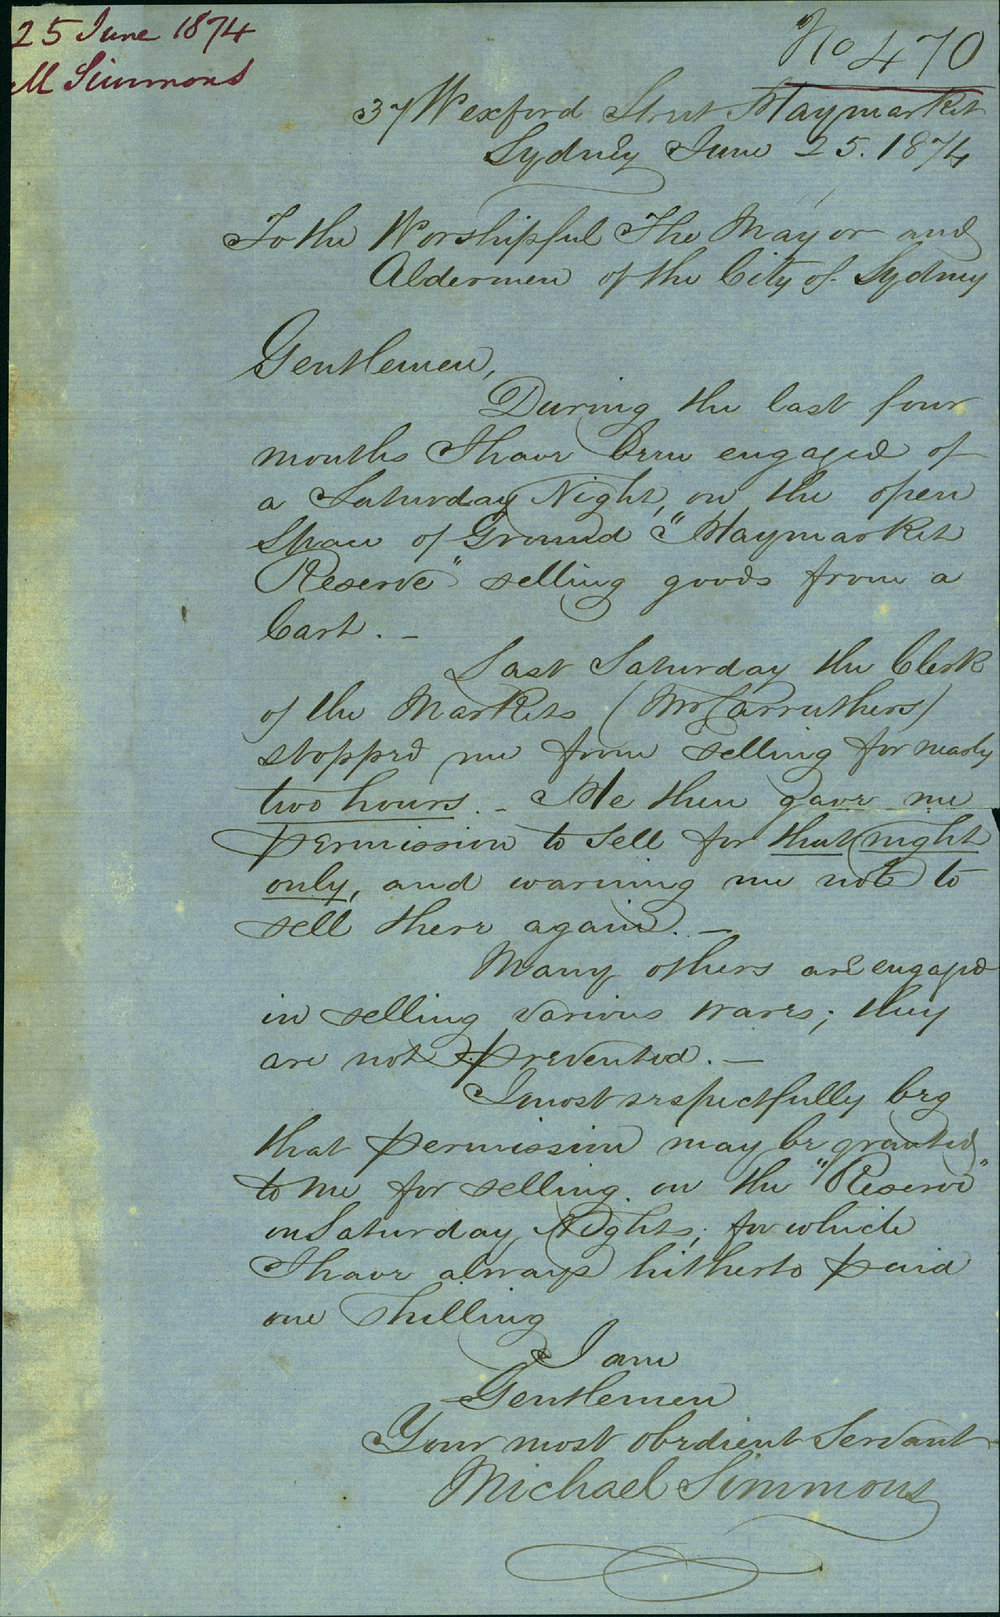 25 June 1874
M Simmons
No 470
37 Wexford Street Haymarket
Sydney June 25. 1874
To the Worshipful The Mayor and
Aldermen of the City of Sydney
Gentlemen,
During the last four
months I have been engaged of
a Saturday Night, on the open
Space of Ground "Haymarket
Reserve" selling goods from a
Cart. –
Last Saturday the Clerk
of the Markets (Mr Carruthers)
stopped me from selling for nearly
two hours. – He then gave me
permission to sell for that night
only, and warning me not to
sell there again. –
Many others are engaged
in selling various wares; they
are not prevented. –
I most respectfully beg
that permission may be granted
to me for selling on the "Reserve"
on Saturday Nights, for which
I have always hitherto paid
one Shilling
I am
Gentlemen
Your most obedient Servant
Michael Simmons